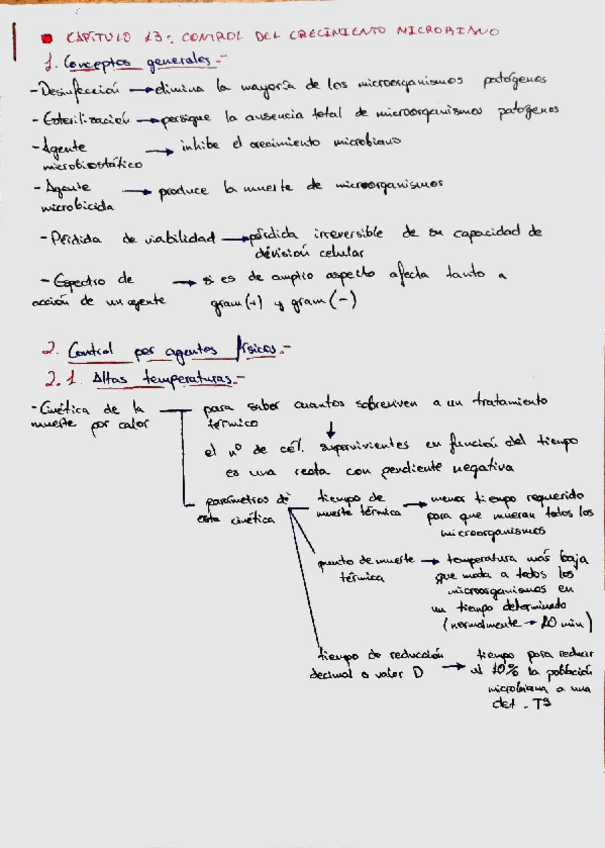 CAPÍTULO 13: CONTROL DEL CRECIMIENTO MICROBIANO
1. Conceptos generales.-
- Desinfección → elimina la mayoría de los microorganismos patógenos
- Esterilización → persigue la ausencia total de microorganismos patógenos
- Agente microbiostático → inhibe el crecimiento microbiano
- Agente microbicida → produce la muerte de microorganismos
- Pérdida de viabilidad → pérdida irreversible de su capacidad de
división celular
- Espectro de → si es de amplio aspecto afecta tanto a
acción de un agente gram(+) y gram(-)
2. Control por agentos físicos.-
2.1. Altas temperaturas.-
- Cinética de la muerte por calor
para saber cuantos sobreviven a un tratamiento
térmico
↓
el nº de cél. supervivientes en función del tiempo
es una recta con pendiente negativa
parámetros de
esta cinética
tiempo de
muerte térmica
→ menor tiempo requerido
para que mueran todos los
microorganismos
punto de muerte
térmica
→ temperatura más baja
que mata a todos los
microorganismos en
un tiempo determinado
(normalmente → 10 min)
tiempo de reducción
decimal o valor D
→ tiempo para reducir
al 10% la población
microbiana a una
det. Tª